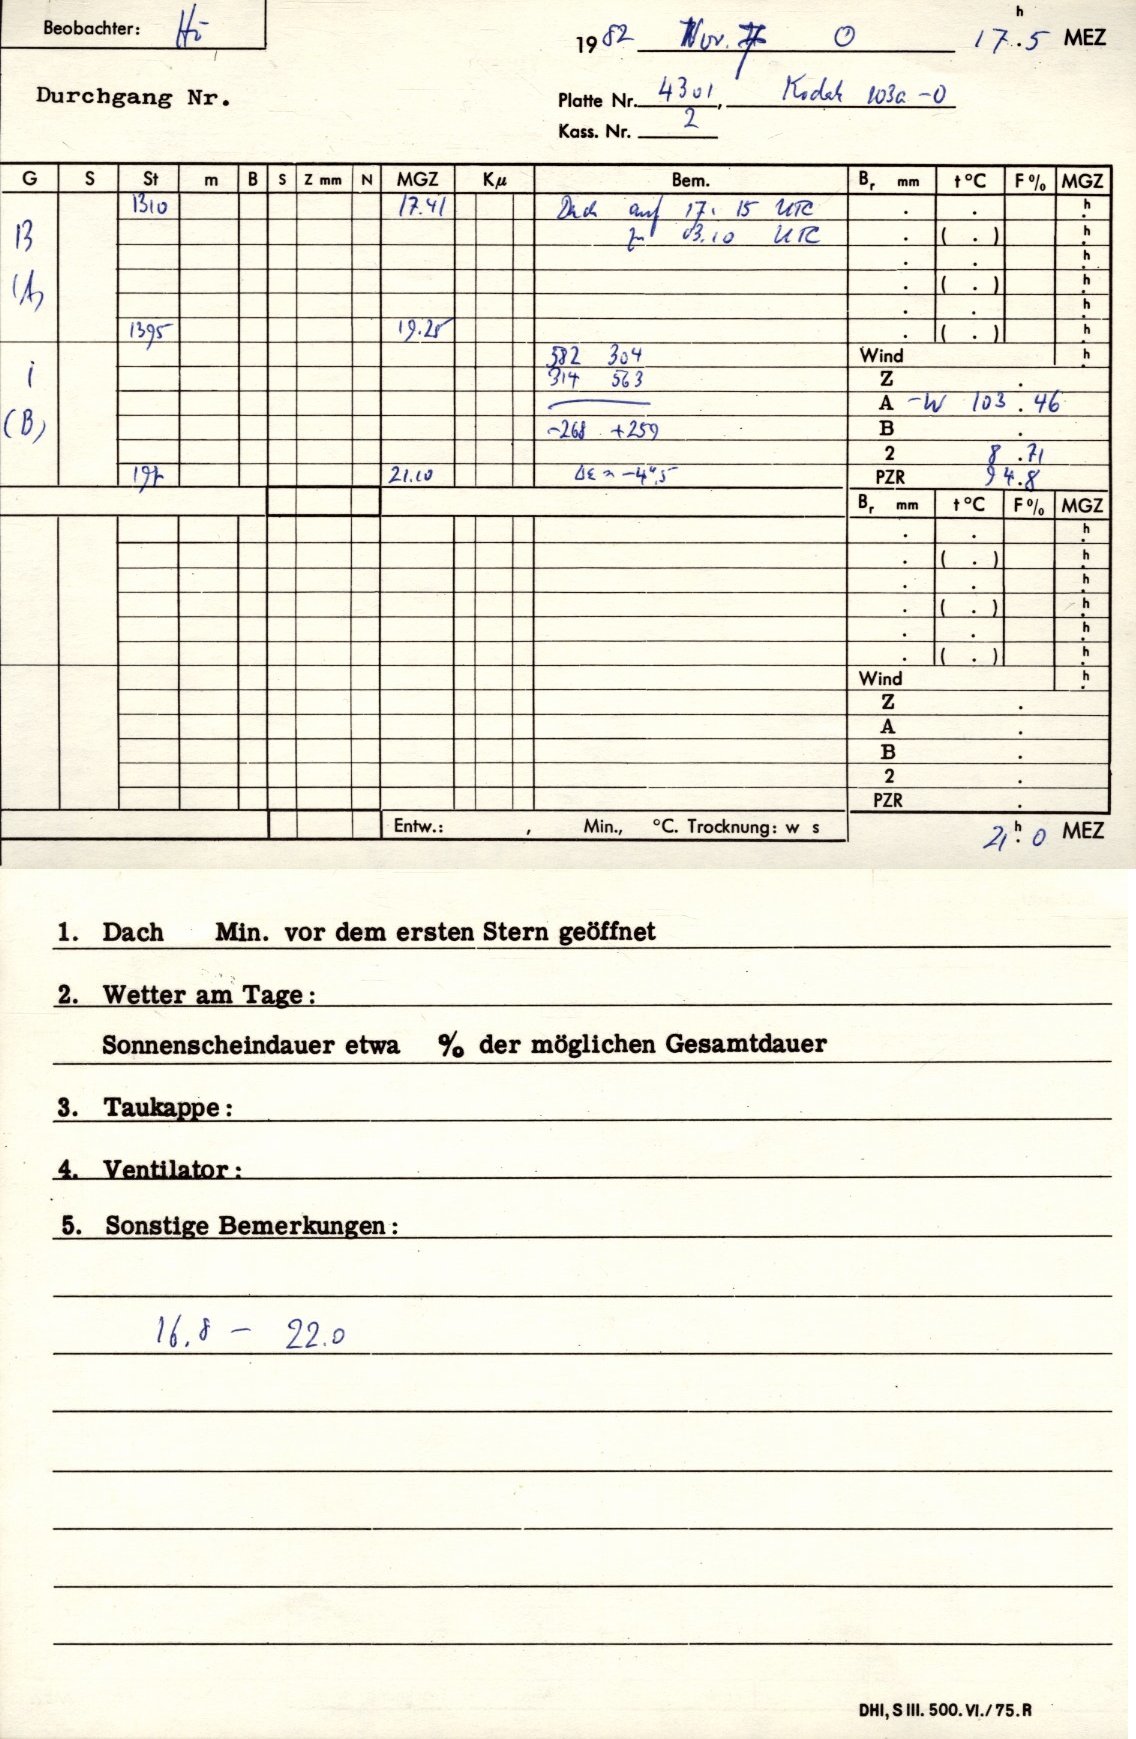 Beobachter: Hü
1982 Nov. 7 0 17.5 h MEZ
Durchgang Nr.
Platte Nr. 4301, Kodak 103a-0
Kass. Nr. 2
G S St m B S Z mm N MGZ Kμ Bem. Br mm t °C F % MGZ
1310 17.41 Dach auf 17. 15 UTC . . h
B zu 03.10 UTC . ( . ) h
. . h
(A) . ( . ) h
. . h
1395 19.25 . ( . ) h
582 304 Wind h
i 314 563 Z .
A -W 103.46
(B) -268 +259 B .
2 8.71
197 21.10 Δε = -4",5 PZR 94.8
Br mm t °C F % MGZ
. . h
. ( . ) h
. . h
. ( . ) h
. . h
. ( . ) h
Wind h
Z .
A .
B .
2 .
PZR .
Entw.: , Min., °C. Trocknung: w s
21.0 h MEZ
1. Dach Min. vor dem ersten Stern geöffnet
2. Wetter am Tage:
Sonnenscheindauer etwa % der möglichen Gesamtdauer
3. Taukappe:
4. Ventilator:
5. Sonstige Bemerkungen:
16.8 - 22.0
DHI, S III. 500. VI./75. R